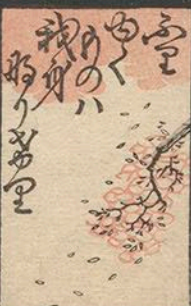 ふり
ゆく
ものハ
我身
なりけり